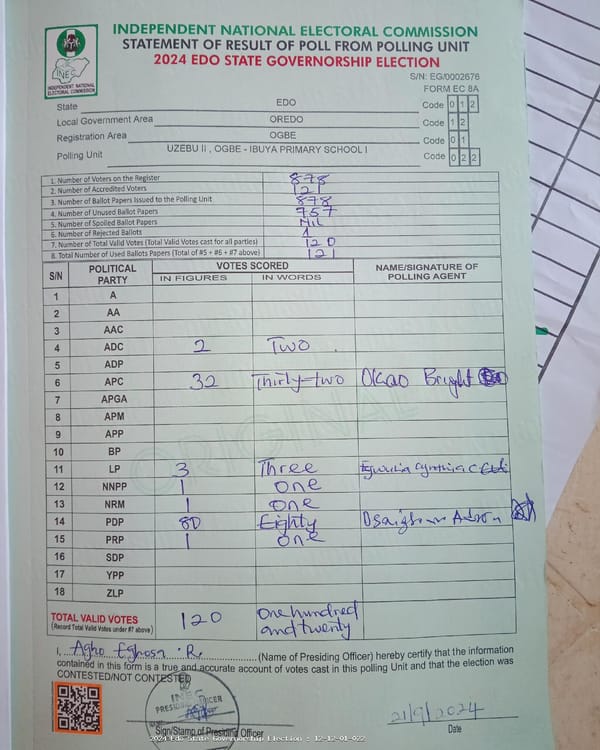 INDEPENDENT NATIONAL ELECTORAL COMMISSION
STATEMENT OF RESULT OF POLL FROM POLLING UNIT
2024 EDO STATE GOVERNORSHIP ELECTION
INEC
INDEPENDENT NATIONAL ELECTORAL COMMISSION
S/N: EG/0002676
FORM EC 8A
State EDO Code 0 1 2
Local Government Area OREDO Code 1 2
Registration Area OGBE Code 0 1
Polling Unit UZEBU II , OGBE - IBUYA PRIMARY SCHOOL I Code 0 2 2
1. Number of Voters on the Register 878
2. Number of Accredited Voters 121
3. Number of Ballot Papers Issued to the Polling Unit 878
4. Number of Unused Ballot Papers 757
5. Number of Spoiled Ballot Papers Nil
6. Number of Rejected Ballots 1
7. Number of Total Valid Votes (Total Valid Votes cast for all parties) 120
8. Total Number of Used Ballots Papers (Total of #5 + #6 + #7 above) 121
S/N POLITICAL PARTY VOTES SCORED NAME/SIGNATURE OF POLLING AGENT
IN FIGURES IN WORDS
1 A
2 AA
3 AAC
4 ADC 2 Two
5 ADP
6 APC 32 Thirty-two Okao Bright
7 APGA
8 APM
9 APP
10 BP
11 LP 3 Three
12 NNPP 1 one
13 NRM 1 one
14 PDP 80 Eighty
15 PRP 1 one
16 SDP
17 YPP
18 ZLP
ORIGINAL
TOTAL VALID VOTES 120 One hundred and twenty
(Record Total Valid Votes under #7 above)
I, Agho Eghosa . R. (Name of Presiding Officer) hereby certify that the information
contained in this form is a true and accurate account of votes cast in this polling Unit and that the election was
CONTESTED/NOT CONTESTED
INEC
PRESIDING OFFICER
Sign/Stamp of Presiding Officer
21/9/2024
Date
2024 Edo State Governorship Election : 12-12-01-022